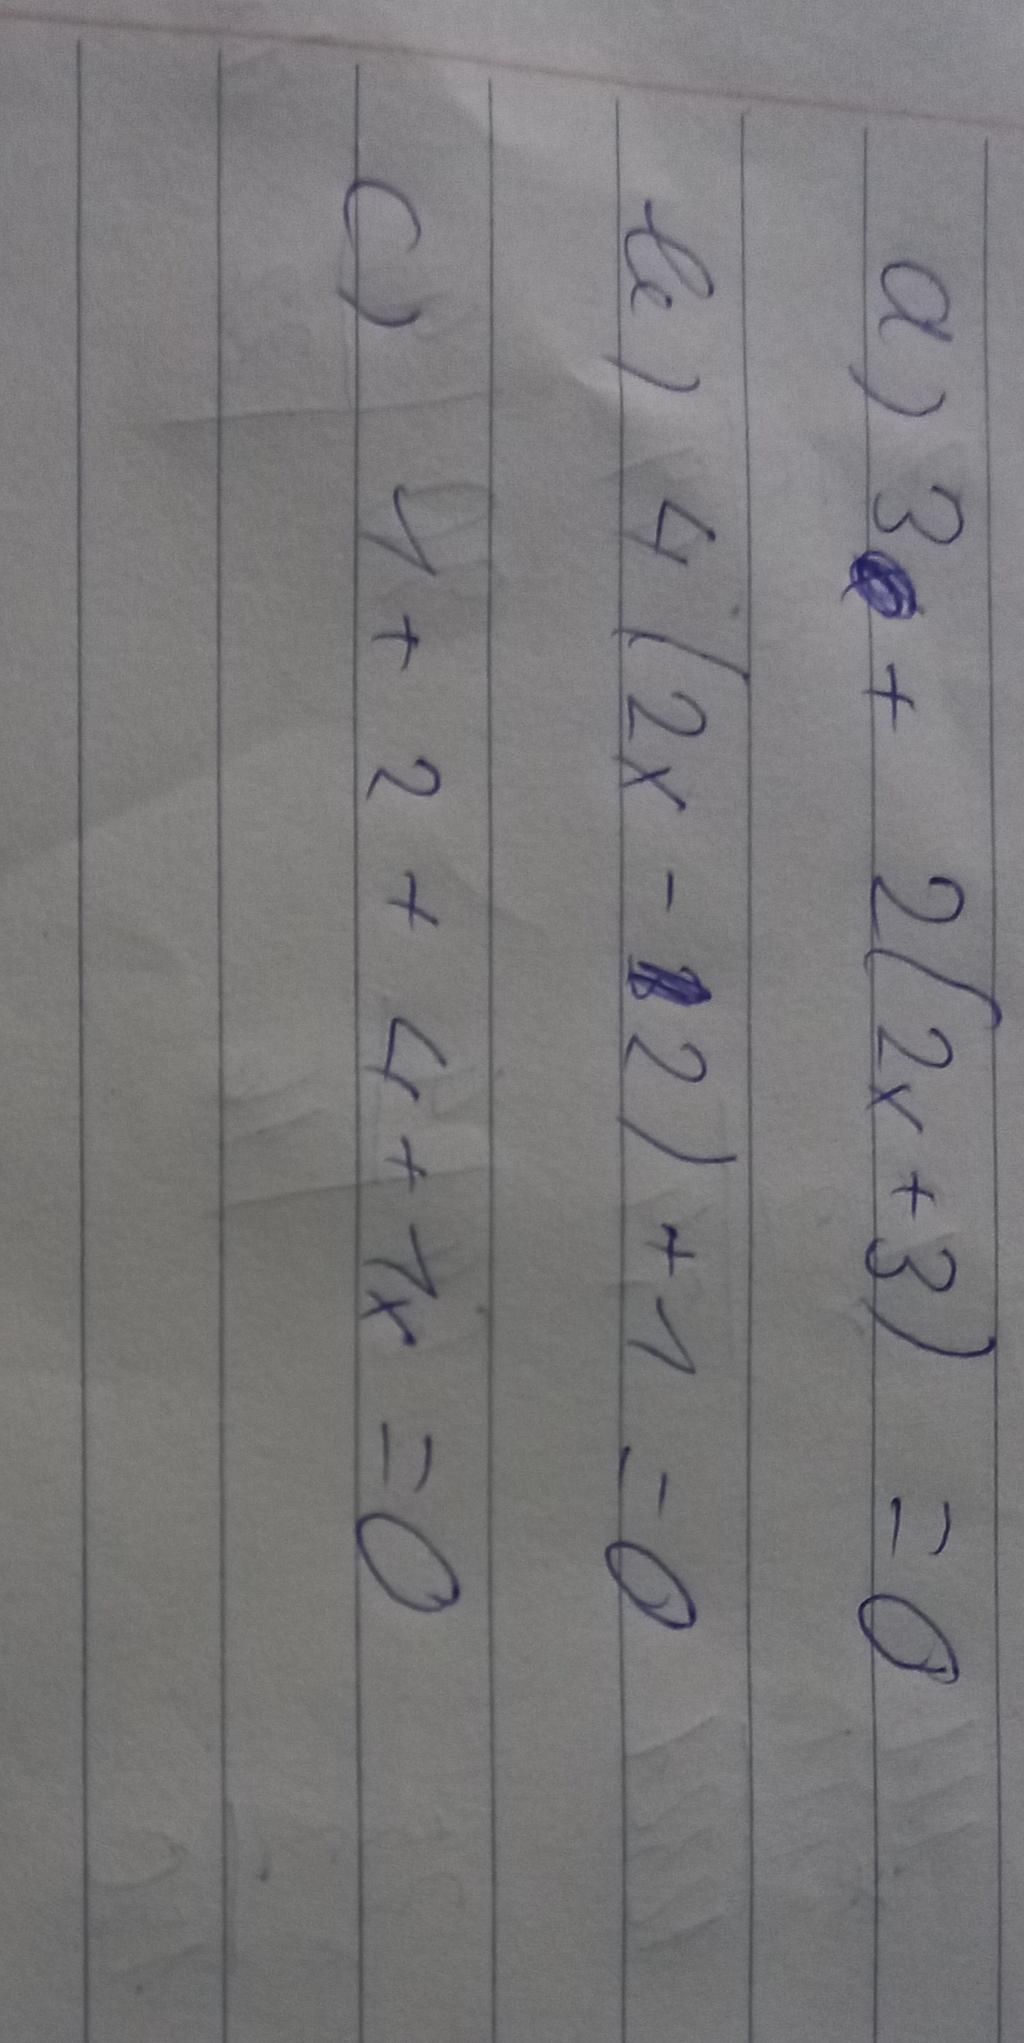 a) 3 + 2(2x+3) = 0
b) 4(2x - 2) + 1 = 0
c) 4 + 2 + 4 + 1x = 0